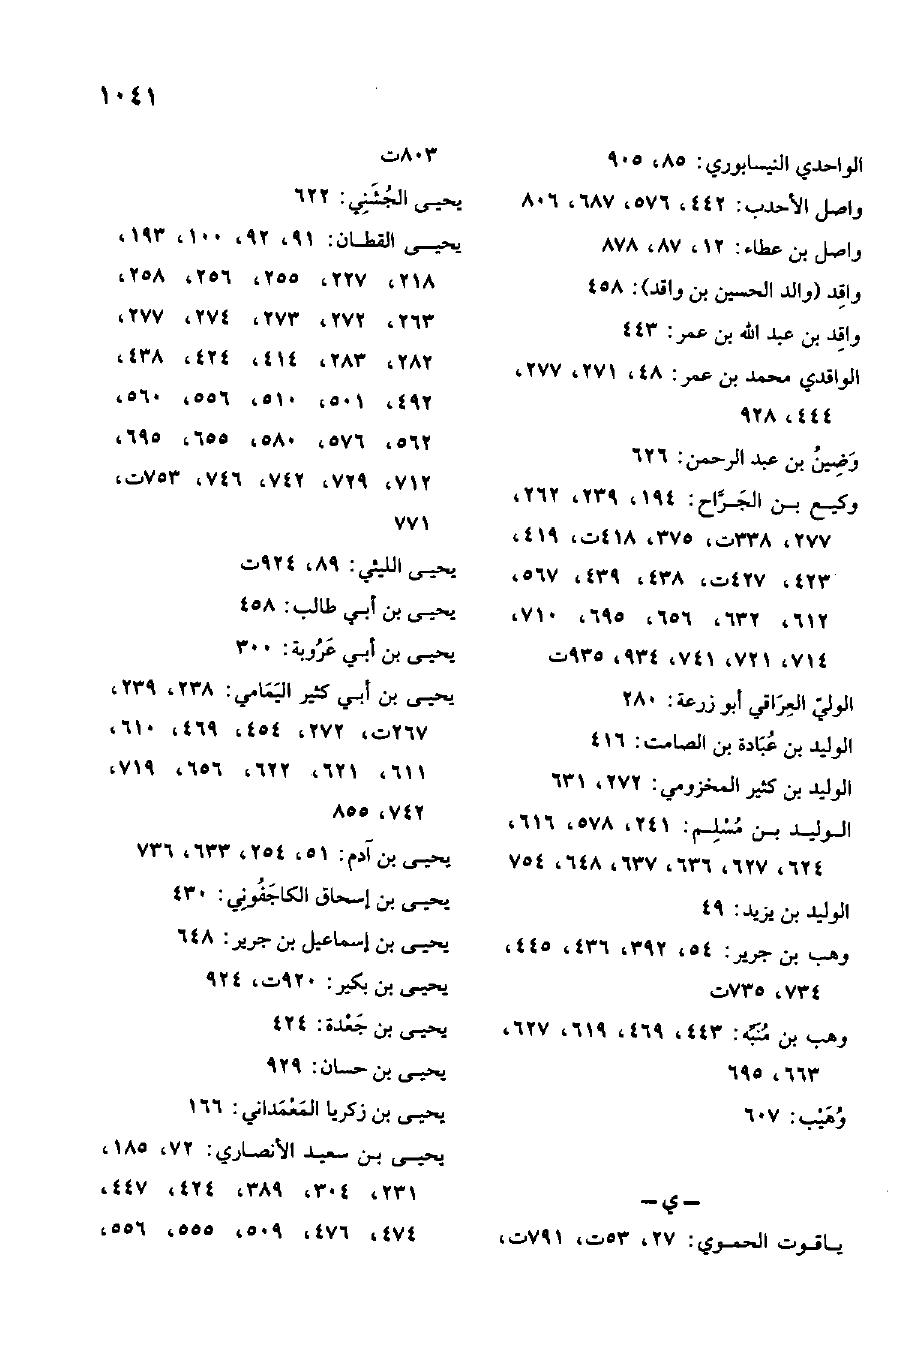 ١٠٤١
الواحدي النيسابوري: ٨٥، ٩٠٥
واصل الأحدب: ٤٤٢، ٥٧٦، ٦٨٧، ٨٠٦
واصل بن عطاء: ١٢، ٨٧، ٨٧٨
واقِد (والد الحسين بن واقد): ٤٥٨
واقِد بن عبد الله بن عمر: ٤٤٣
الواقدي محمد بن عمر: ٤٨، ٢٧١، ٢٧٧،
٤٤٤، ٩٢٨
وَضِينُ بن عبد الرحمن: ٦٢٦
وكيع بن الجَرَّاح: ١٩٤، ٢٣٩، ٢٦٢،
٢٧٧، ٣٣٨ت، ٣٧٥، ٤١٨ت، ٤١٩،
٤٢٣، ٤٢٧ت، ٤٣٨، ٤٣٩، ٥٦٧،
٦١٢، ٦٣٢، ٦٥٦، ٦٩٥، ٧١٠،
٧١٤، ٧٢١، ٧٤١، ٩٣٤، ٩٣٥ت
الوليّ العِرَاقي أبو زرعة: ٢٨٠
الوليد بن عُبَادة بن الصامت: ٤١٦
الوليد بن كثير المخزومي: ٢٧٢، ٦٣١
الوليد بن مُسْلِم: ٢٤١، ٥٧٨، ٦١٦،
٦٢٤، ٦٢٧، ٦٣٦، ٦٣٧، ٦٤٨، ٧٥٤
الوليد بن يزيد: ٤٩
وهب بن جرير: ٥٤، ٣٩٢، ٤٣٦، ٤٤٥،
٧٣٤، ٧٣٥ت
وهب بن مُنَبِّه: ٤٤٣، ٤٦٩، ٦١٩، ٦٢٧،
٦٦٣، ٦٩٥
وُهَيْب: ٦٠٧
– ي –
ياقوت الحموي: ٢٧، ٥٣ت، ٧٩١ت،
٨٠٣ت
يحيى الجُشَنِي: ٦٢٢
يحيى القطان: ٩١، ٩٢، ١٠٠، ١٩٣،
٢١٨، ٢٢٧، ٢٥٥، ٢٥٦، ٢٥٨،
٢٦٣، ٢٧٢، ٢٧٣، ٢٧٤، ٢٧٧،
٢٨٢، ٢٨٣، ٤١٤، ٤٢٤، ٤٣٨،
٤٩٢، ٥٠١، ٥١٠، ٥٥٦، ٥٦٠،
٥٦٢، ٥٧٦، ٥٨٠، ٦٥٥، ٦٩٥،
٧١٢، ٧٢٩، ٧٤٢، ٧٤٦، ٧٥٣ت،
٧٧١
يحيى الليثي: ٨٩، ٩٢٤ت
يحيى بن أبي طالب: ٤٥٨
يحيى بن أبي عَرُوبة: ٣٠٠
يحيى بن أبي كثير اليَمَامي: ٢٣٨، ٢٣٩،
٢٦٧ت، ٢٧٢، ٤٥٤، ٤٦٩، ٦١٠،
٦١١، ٦٢١، ٦٢٢، ٦٥٦، ٧١٩،
٧٤٢، ٨٥٥
يحيى بن آدم: ٥١، ٢٥٤، ٦٣٣، ٧٣٦
يحيى بن إسحاق الكاجَغُوني: ٤٣٠
يحيى بن إسماعيل بن جرير: ٦٤٨
يحيى بن بكير: ٩٢٠ت، ٩٢٤
يحيى بن جَعْدة: ٤٢٤
يحيى بن حسان: ٩٢٩
يحيى بن زكريا المَعْمَداني: ١٦٦
يحيى بن سعيد الأنصاري: ٧٢، ١٨٥،
٢٣١، ٣٠٤، ٣٨٩، ٤٢٤، ٤٤٧،
٤٧٤، ٤٧٦، ٥٠٩، ٥٥٥، ٥٥٦،